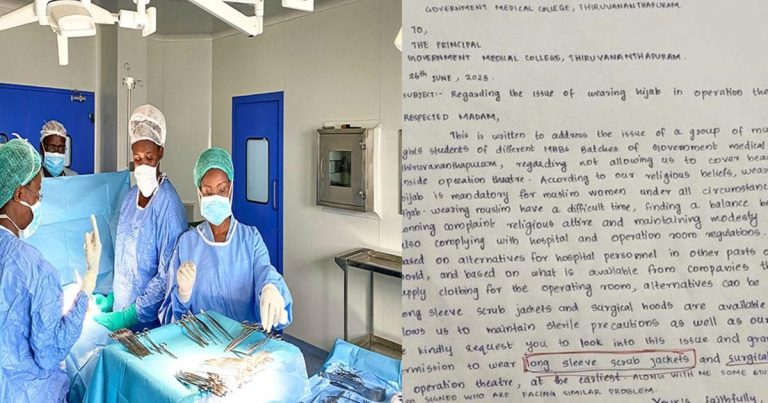 GOVERNMENT MEDICAL COLLEGE, THIRUVANANTHAPURAM.
TO,
THE PRINCIPAL
GOVERNMENT MEDICAL COLLEGE, THIRUVANANTHAPURAM.
26th JUNE, 2023
SUBJECT:- Regarding the issue of wearing hijab in operation the
RESPECTED MADAM,
This is written to address the issue of a group of mu
girls students of different MBBS Batches of Government medical
Thiruvananthapuram, regarding not allowing us to cover hea
inside operation theatre. According to our religious beliefs, wea
hijab is mandatory for muslim women under all circumstanc
hijab-wearing muslim have a difficult time, finding a balance be
onning complaint religious attire and maintaining modesty
also complying with hospital and operation room regulations.
ased on alternatives for hospital personnel in other parts o
orld, and based on what is available from companies th
upply clothing for the operating room, alternatives can be
ong sleeve scrub jackets and surgical hoods are available
llows us to maintain sterile precautions as well as our
e kindly request you to look into this issue and gran
ermission to wear long sleeve scrub jackets and surgical
operation theatre, at the earliest. ALONG WITH ME SOME STU
SIGNED WHO ARE FACING SIMILAR PROBLEM.
Yours faithfully,